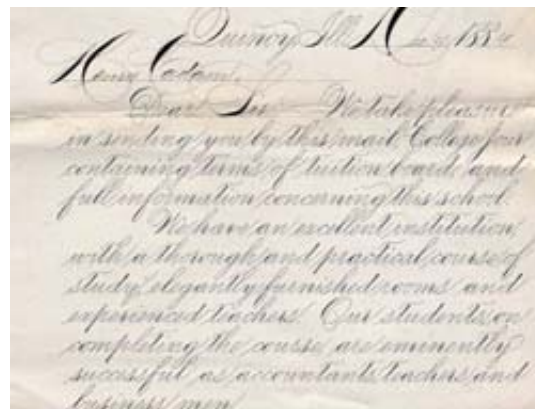 Quincy, Ill. 188
Henry C. Adam
Dear Sir We take pleasure
in sending you by this mail College Jour
containing terms of tuition board and
full information concerning this school.
We have an excellent institution,
with a thorough and practical course of
study, elegantly furnished rooms and
experienced teachers. Our students, on
completing the course are eminently
successful as accountants, teachers and
business men